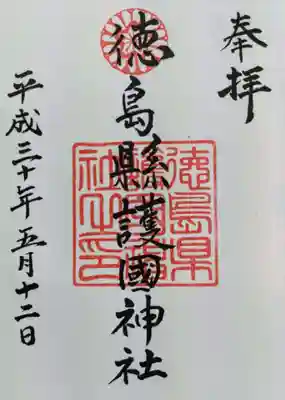 奉拝
徳島縣護國神社
平成三十年五月十二日
徳島県
護國神
社之印